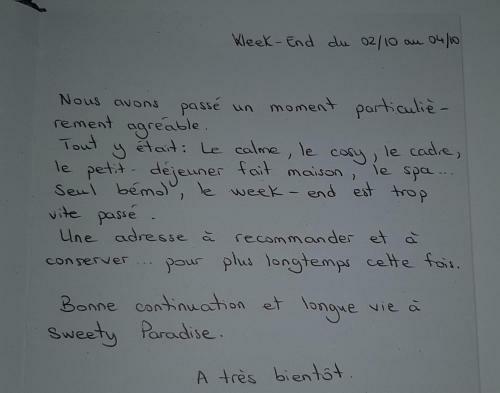 Week-End du 02/10 au 04/10
Nous avons passé un moment particuliè-
rement agréable.
Tout y était: Le calme, le cosy, le cadre,
le petit-déjeuner fait maison, le spa...
Seul bémol, le week-end est trop
vite passé.
Une adresse à recommander et à
conserver... pour plus longtemps cette fois.
Bonne continuation et longue vie à
Sweety Paradise.
A très bientôt.